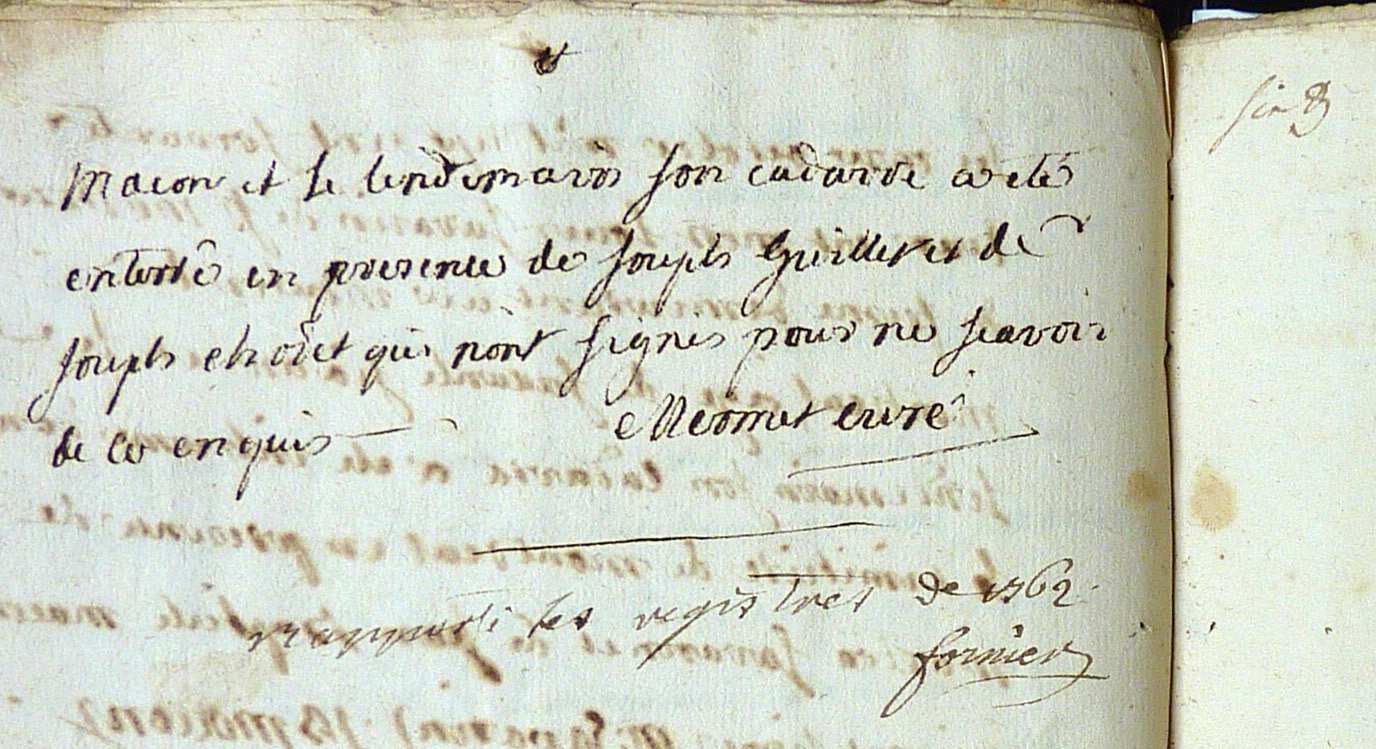 macon et le lendemain son cadavre a eté
enterré en presence de Joseph Guillet et de
Joseph choet qui n'ont signés pour ne scavoir
de ce enquis
Mermet curé
rapporté les registres de 1762
fornier